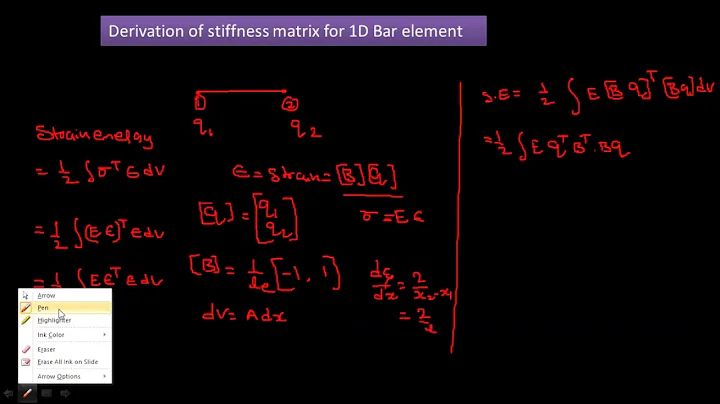 Derivation of stiffness matrix for 1D Bar element
1 2
q₁ q₂
Strain energy
= 1/2 ∫ σᵀ ϵ dv
= 1/2 ∫ (E ϵ)ᵀ ϵ dv
= 1/2 ∫ E ϵᵀ ϵ dv
ϵ = strain = [B][q]
σ = E ϵ
[q] = [q₁ q₂]
[B] = 1/le [-1, 1]
dv = A dx
dξ/dx = 2/(x₂-x₁)
= 2/l
S.E = 1/2 ∫ E [B q]ᵀ [Bq] dv
= 1/2 ∫ E qᵀ Bᵀ. Bq
Arrow
Pen
Highlighter
Ink Color
Eraser
Erase All Ink on Slide
Arrow Options